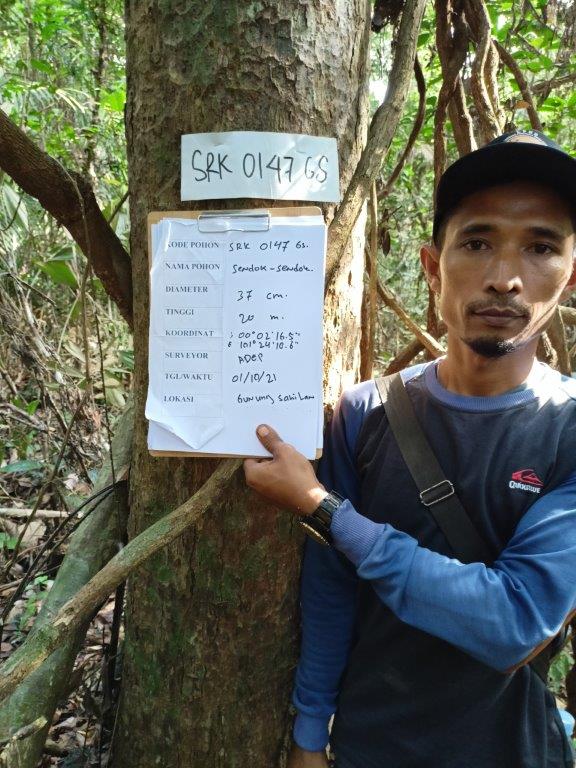 SRK 0147 GS
KODE POHON SRK 0147 GS.
NAMA POHON Sendok-sendok.
DIAMETER 37 cm.
TINGGI 20 m.
KOORDINAT S 00°02'16.5"
E 101°24'10.6"
SURVEYOR ADEP
TGL/WAKTU 01/10/21
LOKASI Gunung Sahilan
QUIKSILVER